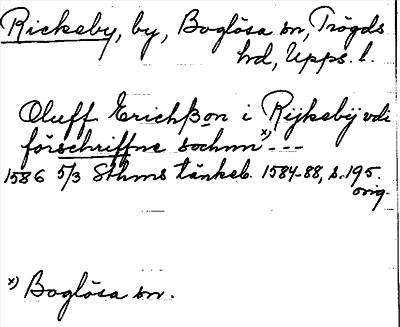 Rickeby, by, Boglösa sn, Trögds
hd, Upps. l.
Oluff Erichßon i Rijkebij vdi
förschriffne sochnn x) ---
1586 5/3 Sthms tänkeb. 1584-88, s. 195.
orig.
x) Boglösa sn.